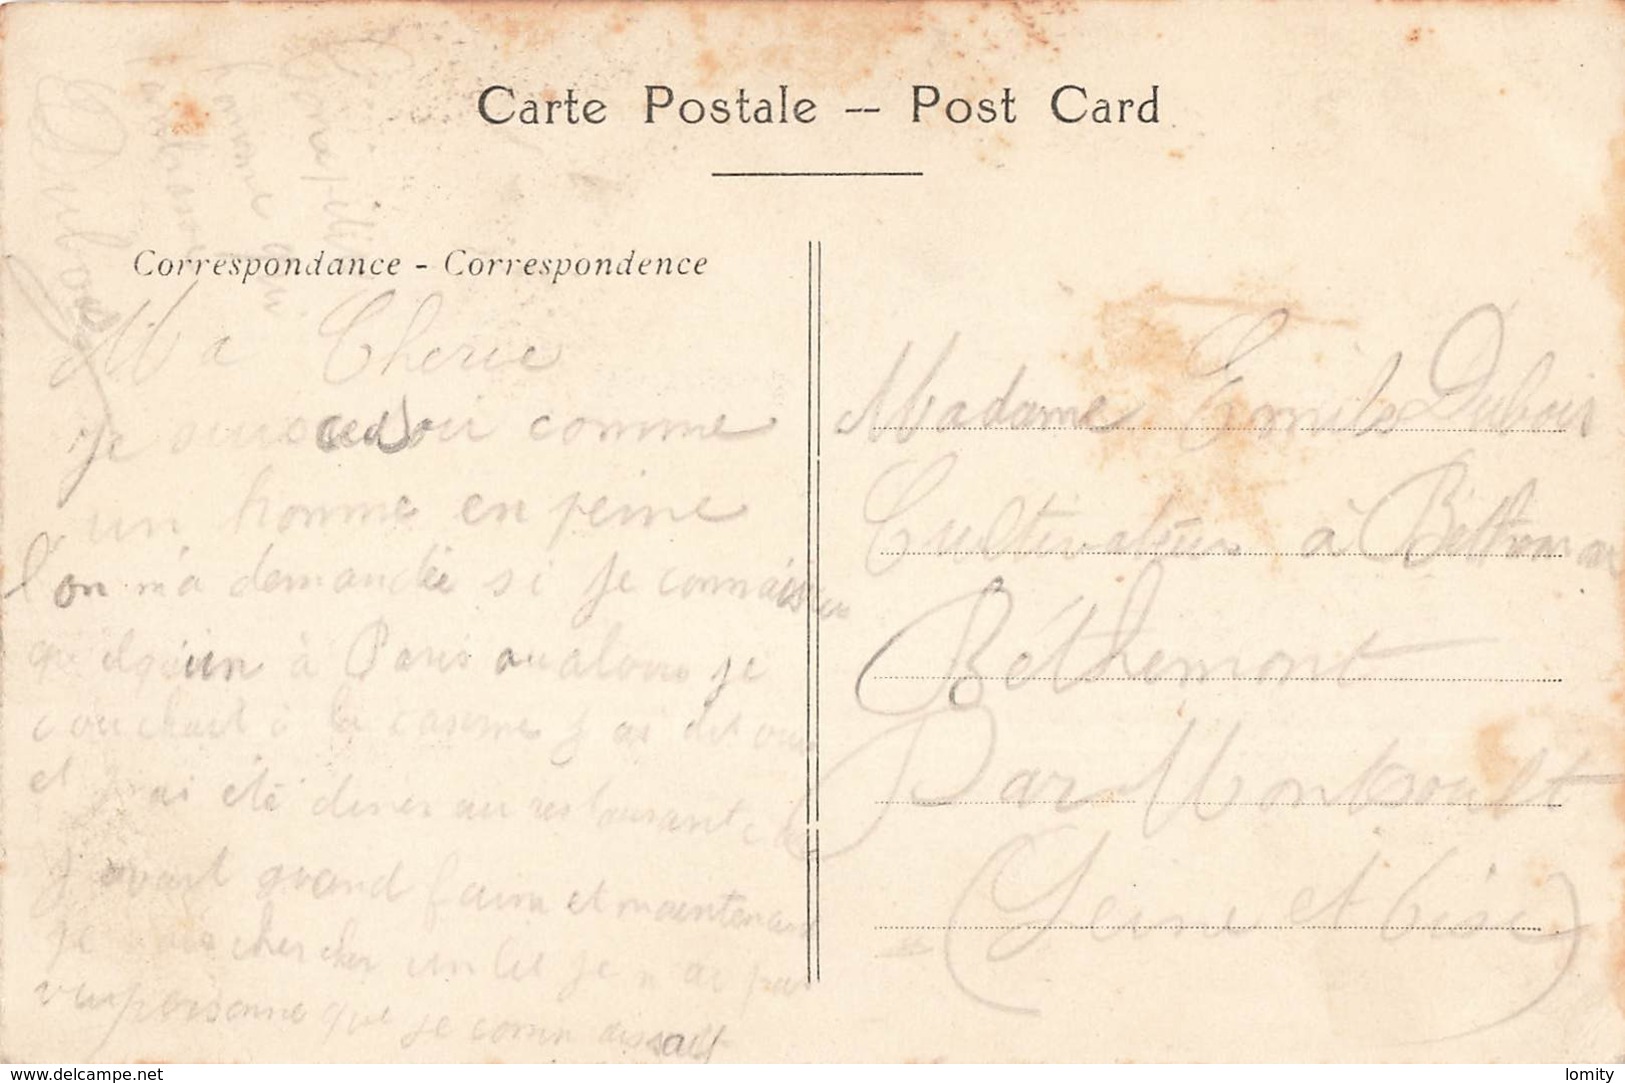 Carte Postale -- Post Card
Correspondance - Correspondence
Ma Cherie
je suis comme
un homme en peine
l'on m'a demandée si je connaissais
quelqu'un à Paris ou alors je
couchait à la caserne j ai dit oui
et j'ai été diner au restaurant
j avait grand faim et maintenant
je vais chercher un lit je n ai pas
vu personne que je connaissait
homme
embrasse
Dubois
Madame Emile Dubois
Cultivateur à
Béthemont
Par Montsoult
(Seine et Oise)
www.delcampe.net
lomity